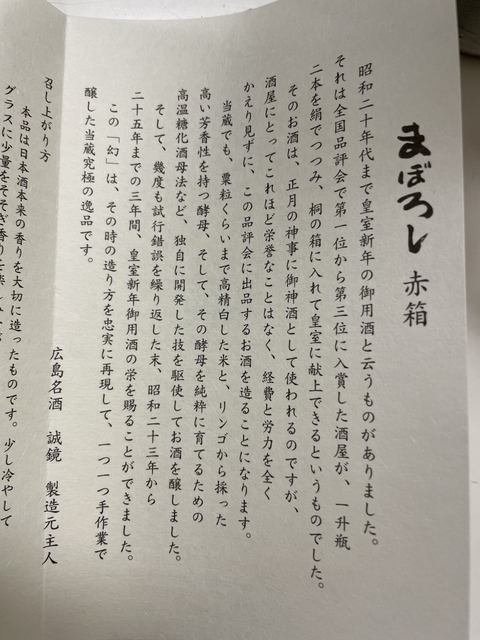 まぼろし 赤箱
昭和二十年代まで皇室新年の御用酒と云うものがありました。
それは全国品評会で第一位から第三位に入賞した酒屋が、一升瓶
二本を絹でつつみ、桐の箱に入れて皇室に献上できるというものでした。
そのお酒は、正月の神事に御神酒として使われるのですが、
酒屋にとってこれほど栄誉なことはなく、経費と労力を全く
かえり見ずに、この品評会に出品するお酒を造ることになります。
当蔵でも、粟粒くらいまで高精白した米と、リンゴから採った
高い芳香性を持つ酵母、そして、その酵母を純粋に育てるための
高温糖化酒母法など、独自に開発した技を駆使してお酒を醸しました。
そして、幾度も試行錯誤を繰り返した末、昭和二十三年から
二十五年までの三年間、皇室新年御用酒の栄を賜ることができました。
この「幻」は、その時の造り方を忠実に再現して、一つ一つ手作業で
醸した当蔵究極の逸品です。
広島名酒 誠鏡 製造元主人
召し上がり方
本品は日本酒本来の香りを大切に造ったものです。少し冷やして
グラスに少量をそそぎ香りを楽し